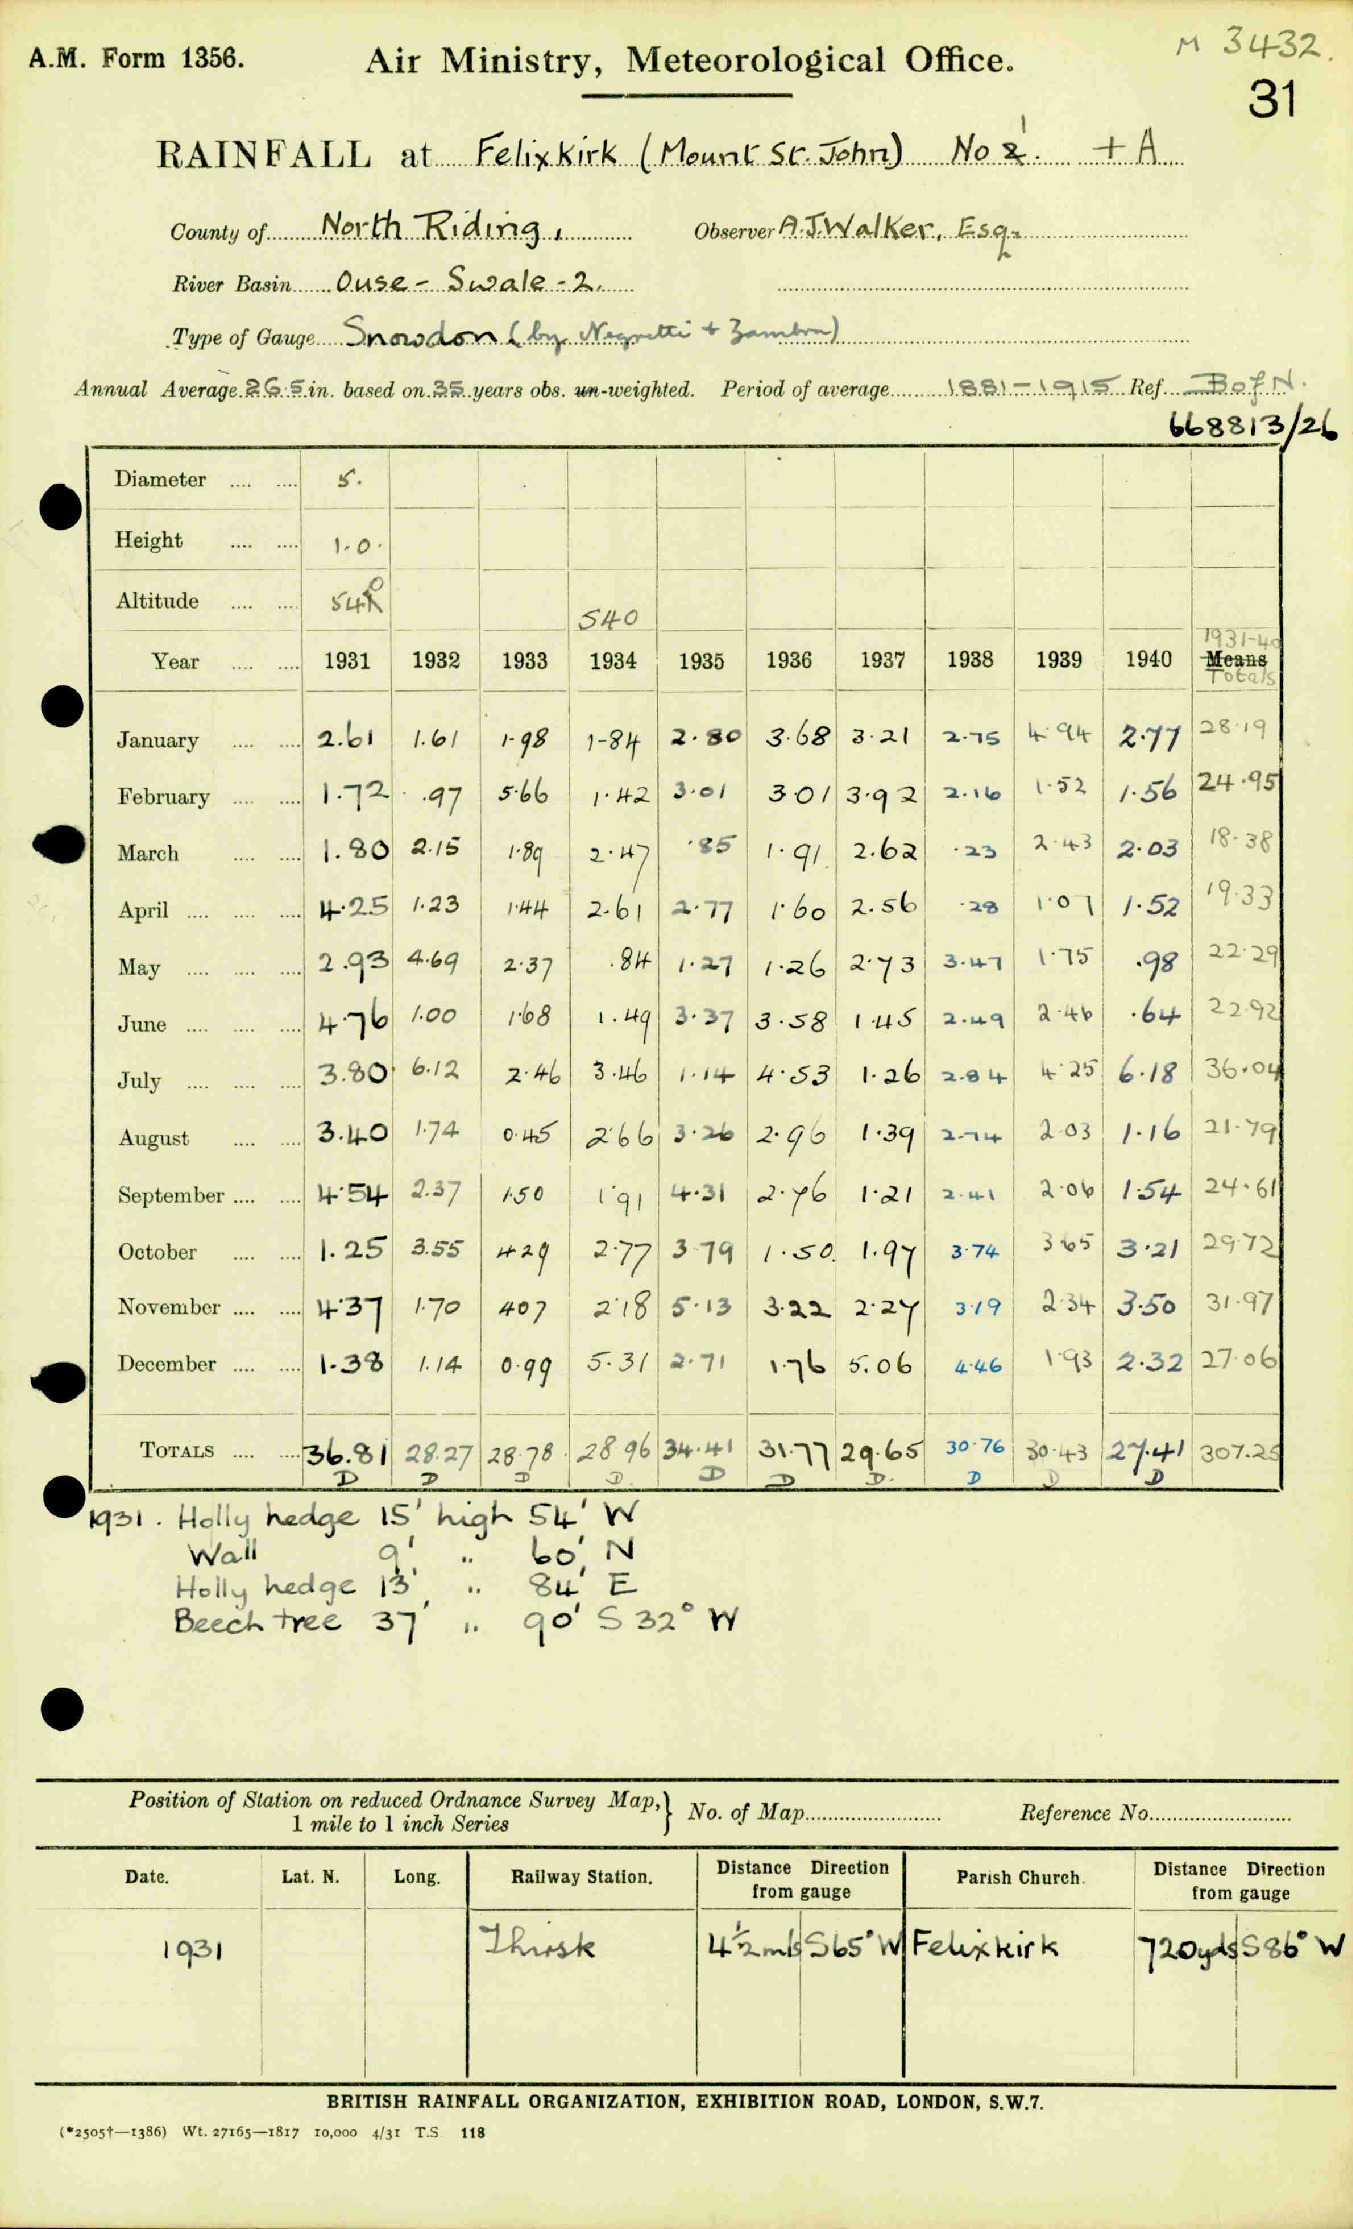 M 3432.
A.M. Form 1356. Air Ministry, Meteorological Office.
31
RAINFALL at Felixkirk (Mount St. John) No 1. + A
County of North Riding, Observer A.J. Walker, Esq.
River Basin Ouse - Swale - 2.
Type of Gauge Snowdon (by Negretti + Zambra)
Annual Average 26.5 in. based on 35 years obs. un-weighted. Period of average 1881-1915 Ref. B of N.
668813/26
Diameter .... .... 5.
Height .... .... 1.0.
Altitude .... .... 540 540
1931-40
Year .... .... 1931 1932 1933 1934 1935 1936 1937 1938 1939 1940 Means
Totals
January .... .... 2.61 1.61 1.98 1-84 2.80 3.68 3.21 2.75 4.94 2.77 28.19
February .... .... 1.72 .97 5.66 1.42 3.01 3.01 3.92 2.16 1.52 1.56 24.95
March .... .... 1.80 2.15 1.89 2.47 .85 1.91 2.62 .23 2.43 2.03 18.38
April .... .... .... 4.25 1.23 1.44 2.61 2.77 1.60 2.56 .28 1.07 1.52 19.33
May .... .... .... 2.93 4.69 2.37 .84 1.27 1.26 2.73 3.47 1.75 .98 22.29
June .... .... .... 4.76 1.00 1.68 1.49 3.37 3.58 1.45 2.49 2.46 .64 22.92
July .... .... .... 3.80 6.12 2.46 3.46 1.14 4.53 1.26 2.84 4.25 6.18 36.04
August .... .... 3.40 1.74 0.45 2.66 3.26 2.96 1.39 2.74 2.03 1.16 21.79
September .... .... 4.54 2.37 1.50 1.91 4.31 2.76 1.21 2.41 2.06 1.54 24.61
October .... .... 1.25 3.55 4.29 2.77 3.79 1.50 1.97 3.74 3.65 3.21 29.72
November .... .... 4.37 1.70 4.07 2.18 5.13 3.22 2.27 3.19 2.34 3.50 31.97
December .... .... 1.38 1.14 0.99 5.31 2.71 1.76 5.06 4.46 1.93 2.32 27.06
TOTALS .... .... 36.81 28.27 28.78 28.96 34.41 31.77 29.65 30.76 30.43 27.41 307.25
D D D D D D D D D D
1931. Holly hedge 15' high 54' W
Wall 9' " 60' N
Holly hedge 13' " 84' E
Beech tree 37' " 90' S 32° W
Position of Station on reduced Ordnance Survey Map, } No. of Map Reference No.
1 mile to 1 inch Series
Date. Lat. N. Long. Railway Station. Distance Direction from gauge Parish Church. Distance Direction from gauge
1931 Thirsk 4½ mls S65°W Felixkirk 720yds S86°W
BRITISH RAINFALL ORGANIZATION, EXHIBITION ROAD, LONDON, S.W.7.
(*2505†—1386) Wt. 27165—1817 10,000 4/31 T.S. 118